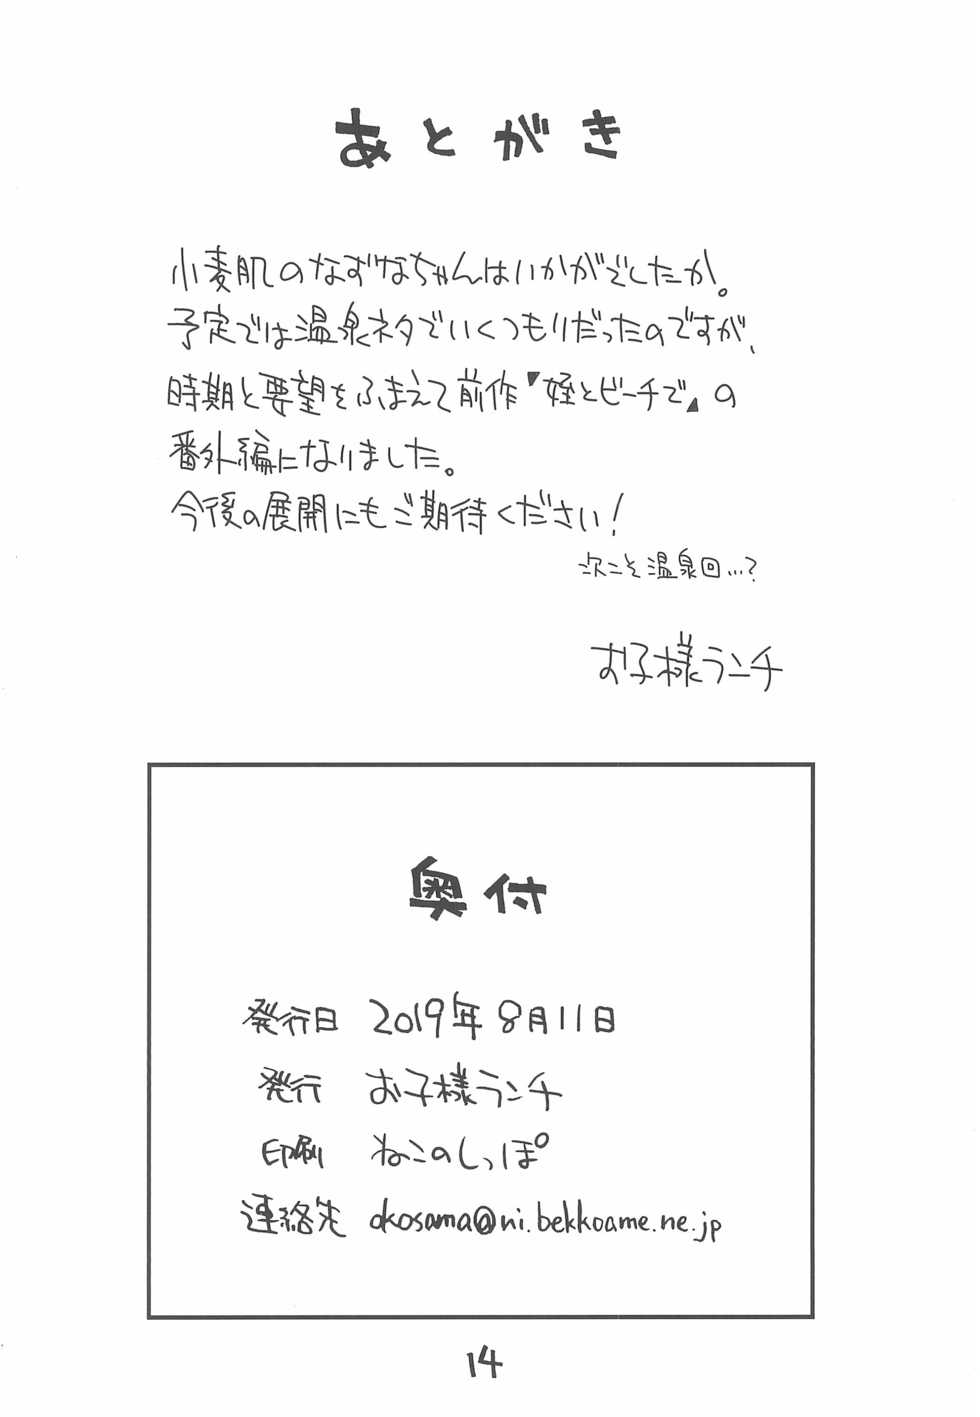 あとがき
小麦肌のなずなちゃんはいかがでしたか。
予定では温泉ネタでいくつもりだったのですが、
時期と要望をふまえて前作『姪とビーチで』の
番外編になりました。
今後の展開にもご期待ください!
次こそ温泉回…?
お子様ランチ
奥付
発行日 2019年8月11日
発行 お子様ランチ
印刷 ねこのしっぽ
連絡先 okosama@ni.bekkoame.ne.jp
14